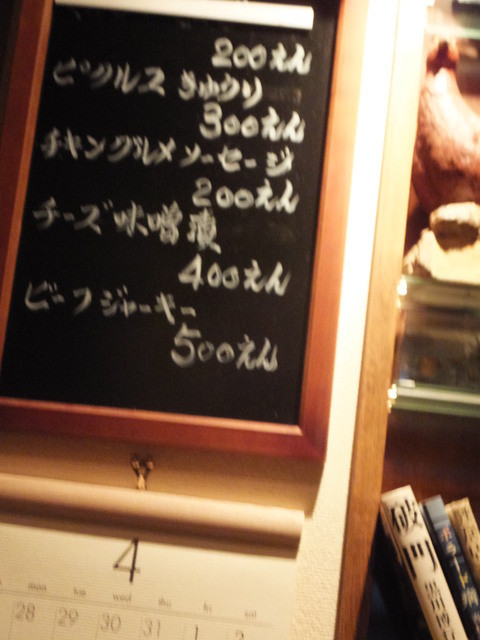 200えん
ピクルス きゅうり
300えん
チキングルメソーセージ
200えん
チーズ味噌漬
400えん
ビーフジャーキー
500えん
4
mon tue wed thu fri sat
28 29 30 31 1 2